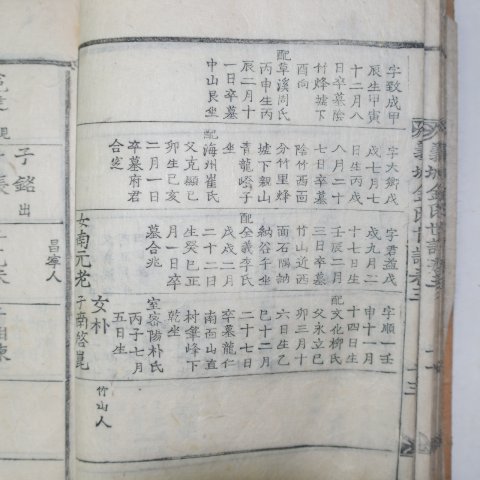 義城金氏世譜卷之
字致成甲
辰生甲寅
十二月八
日卒墓陰
竹烽墟下
酉向
配草溪周氏
丙申生丙
辰二月十
一日卒墓
中山艮坐
字大鄉戊
戌七月七
日生丙戌
八月二十
七日卒墓
陰竹西面
分竹里蜂
墟下親山
青龍嶝子
坐
配海州崔氏
父克顯己
卯生己亥
二月一日
卒墓府君
合窆
字君益戊
戌九月二
十七日生
壬辰二月
三日卒墓
竹山近西
面石隅訥
納谷午坐
配全義李氏
戊戌二月
二十二日
生癸巳正
月一日卒
墓合兆
女南元老
子南啓崑
字順一壬
申十一月
十四日生
配文化柳氏
父永立己
卯三月十
六日生乙
巳十二月
二十七日
卒墓龍仁
南面山直
村筆峰下
乾坐
室密陽朴氏
丙子七月
五日生
女朴
竹山人
子銘 出
昌寧人